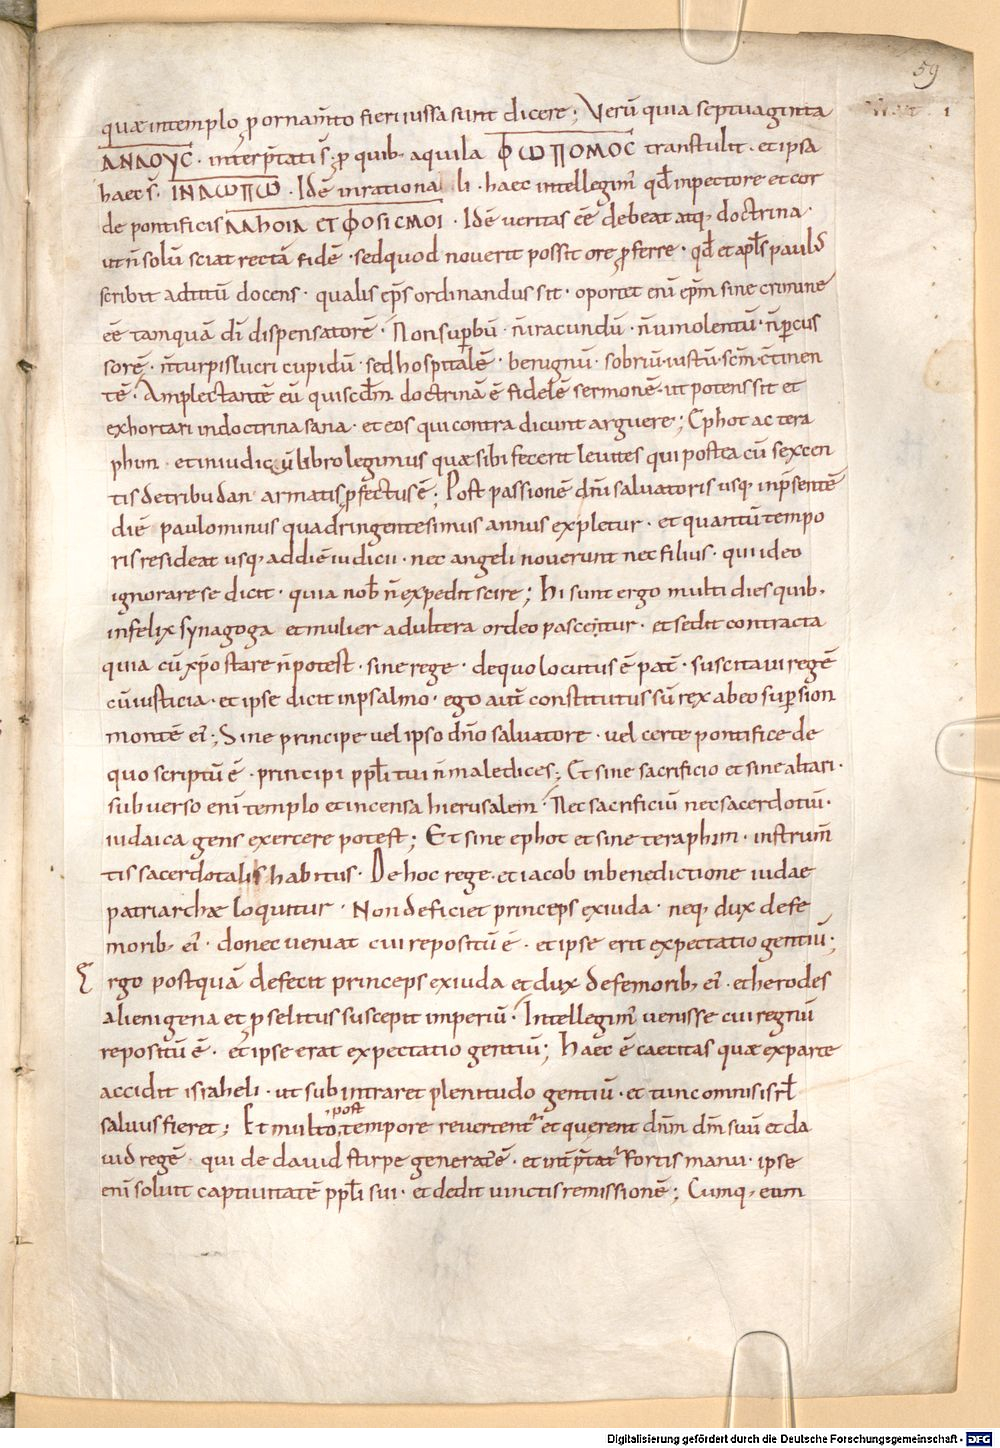 59
quæ in templo ꝓ ornam̅to fieri iussa sunt dicere; Verū quia septuaginta
ΑΝΛΟΥC · interp̅tati s̅; ꝓ quib; aquila ΦωΠΟΜΟC transtulit · et ipsa
haec s̅ · ΙΝΛωΠω · Idē in rationali · haec intellegim' qđ in pectore et cor
de pontificis · Idē veritas ēē debeat atq; doctrina ·
ut n̅ solū sciat rectā fidē · sed quod noverit possit ore ꝓferre · qđ et apl̅s paulus
scribit ad titū docens · qualis ep̅s ordinandus sit · oportet enī ep̅m sine crimine
ēē tamquā dī dispensatorē · Non suꝑbū · n̅ iracundū · n̅ vinolentū · n̅ ꝑcus
sorē · n̅ turpis lucri cupidū · sed hospitalē · benignū · sobriū · iustū · sc̅m · c̅tinen
tē · Amplectantē eū qui sc̅dm doctrinā ē fidelē sermonē · ut potens sit et
exhortari in doctrina sana · et eos qui contradicunt arguere; Ephot ac tera
phim · et in iudicū libro legimus quæ sibi fecerit levites qui postea cū sexcen
tis de tribu dan armatis ꝓfectus ē; Post passionē dn̅i salvatoris usq; in p̅sentē
diē paulo minus quadringentesimus annus expletur · et quantū tempo
ris resideat usq; ad diē iudicii · nec angeli noverunt nec filius · qui ideo
ignorare se dicit · quia nob̅ n̅ expedit scire; Hi sunt ergo multi dies quib;
infelix synagoga et mulier adultera ordeo pascitur · et sedit contracta
quia cū xp̅o stare n̅ potest · sine rege · de quo locutus ē pat̅ · suscitavi regē
cū iusticia · et ipse dicit in psalmo · ego aut̅ constitutus sū rex ab eo suꝑ sion
montē ei'; Sine principe vel ipso dn̅o salvatore · vel certe pontifice de
quo scriptū ē · principi ppl̅i tui n̅ maledices; Et sine sacrificio et sine altari ·
subverso enī templo et incensa hierusalem · Nec sacrificiū nec sacerdotiū ·
iudaica gens exercere potest; Et sine ephot et sine teraphim · instrum̅
tis sacerdotalis habitus · De hoc rege · et iacob in benedictione iudae
patriarchæ loquitur · Non deficiet princeps ex iuda · neq; dux de fe
morib; ei' · donec veniat cui repositū ē · et ipse erit expectatio gentiū;
Ergo postquā defecit princeps ex iuda et dux de femorib; ei' · et herodes
alienigena et ꝓselitus suscepit imperiū · Intellegim' venisse cui regnū
repositū ē · et ipse erat expectatio gentiū; Haec ē caecitas quæ ex parte
accidit israheli · ut subintraret plenitudo gentiū · et tunc omnis isrl̅
salvus fieret; Et multo post tempore revertent' et querent dn̅m dm̅ suū et da
vid regē · qui de david stirpe generat̅ ē · et int̅p̅tat' Fortis manu · ipse
enī solvit captivitatē ppl̅i sui · et dedit vinctis remissionē; Cumq; eum
Digitalisierung gefördert durch die Deutsche Forschungsgemeinschaft - DFG